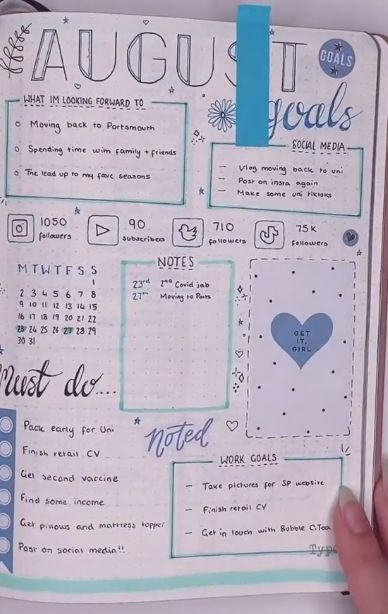 AUGUST
GOALS
goals
WHAT IM LOOKING FORWARD TO
Moving back to Portsmouth
Spending time with family + friends
The lead up to my fave seasons
SOCIAL MEDIA
– Vlog moving back to uni
– Post on insta again
– Make some uni tiktoks
1050 followers
90 subscribers
710 followers
75K followers
M T W T F S S
1
2 3 4 5 6 7 8
9 10 11 12 13 14 15
16 17 18 19 20 21 22
23 24 25 26 27 28 29
30 31
NOTES
23rd 2nd Covid jab
27th Moving to Ports
GET
IT,
GIRL
Must do...
Pack early for Uni
Finish retail CV
Get second vaccine
Find some income
Get pillows and mattress topper
Post on social media!!
Noted
WORK GOALS
– Take pictures for SP website
– Finish retail CV
– Get in touch with Bubble CiTea